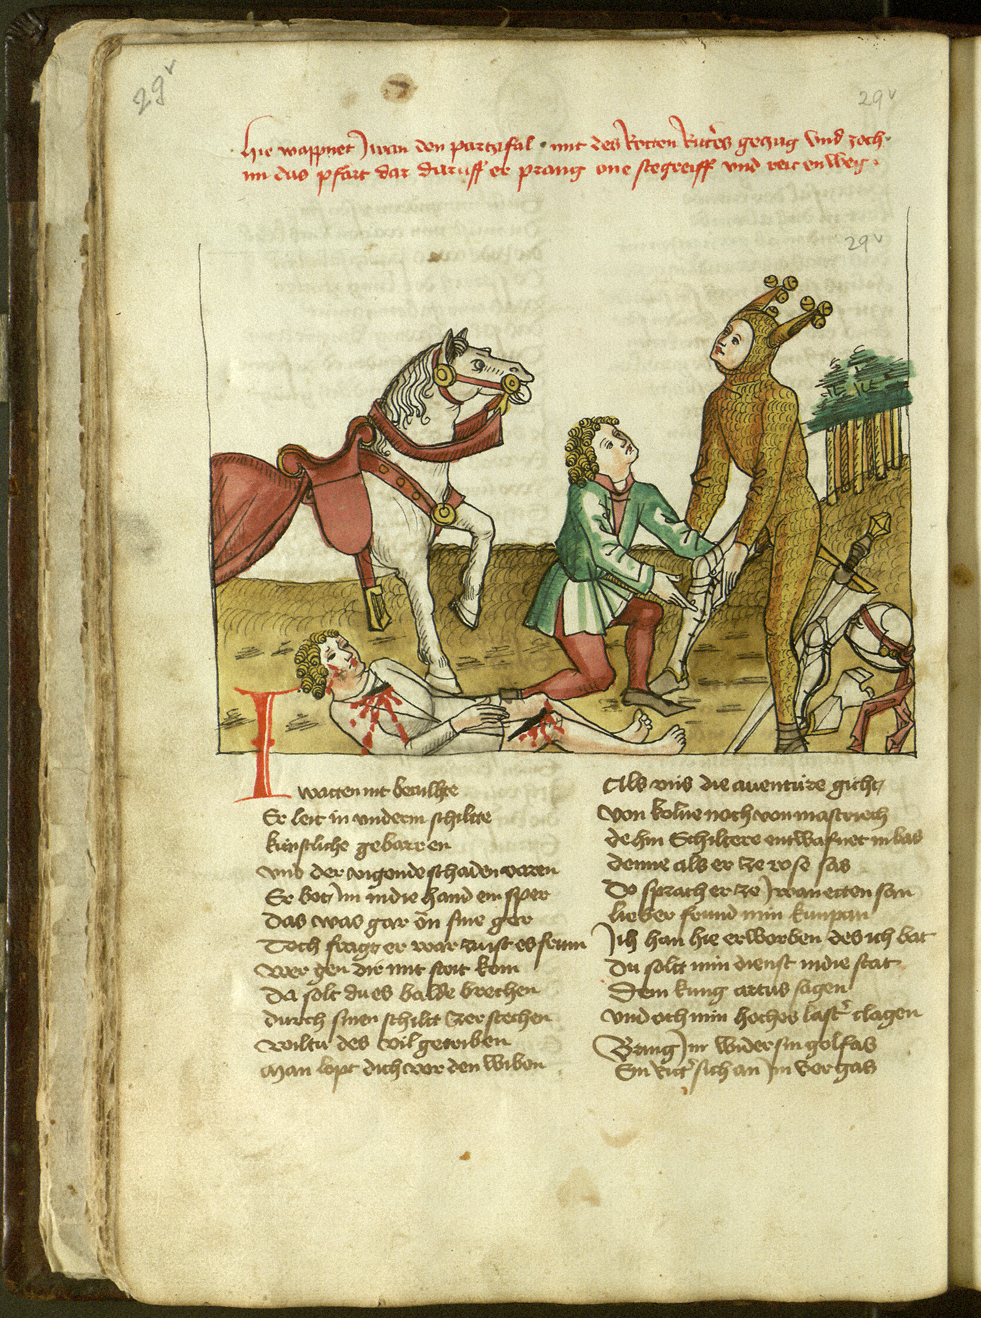 29v
29v
hie wappnet Jwan den partzifal · mit des Rotten Ritters gezug vnd zoch
im das pfärt dar daruff er prang one stegreiff vnd reit enweg ·
29v
I waneninit beuilhte
Er leit in vnderm schiltte
künstliche gebarren
vnd der tugende schaden waren
Er bot Jm in die hand ein sper
Das was gar ön sine ger
Doch fragt er war zuo ist es frum
Wer gen dir mit stoit kom
Da solt du es balde brechen
durch sinen schiltt zerstechen
wiltu des vil getriben
Man lopt dich vor den wiben
Als vns die auenture gicht
Von kolne noch von mastricht
dehin Schiltere entwarf net in bas
denne als er ze rose sas
Do sprach er ze Jwanetten san
lieber frund min kunpan
Jch han hie erworben des ich bat
Du soltt min dienst in die stat
Dem kung artus sagen
Vnd och min hohes laster clagen
Bring Jm wider sin golfas
Ein Ritter sich an Jm vergas